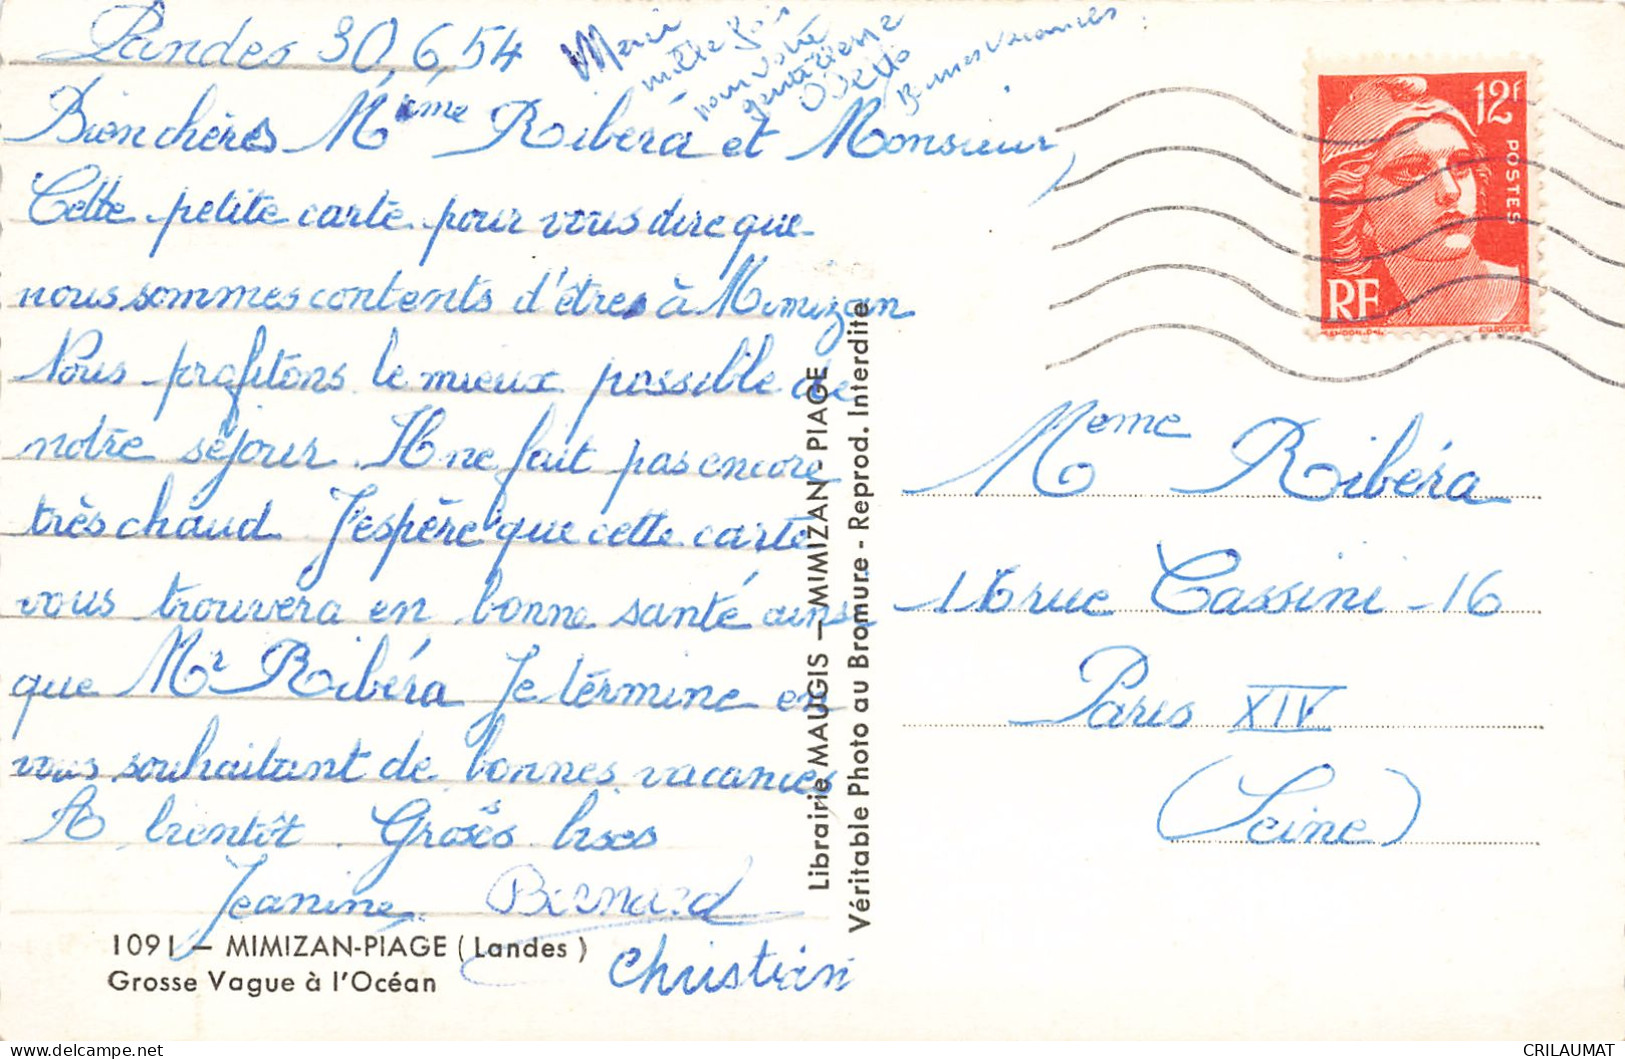 Landes 30,6,54
Merci
mille fois
pour votre
gentillesse
Bonnes Vacances
Bien chères Mᵉme Ribéra et Monsieur,
Cette petite carte pour vous dire que
nous sommes contents d'êtres à Mimizan
Nous profitons le mieux possible de
notre séjour. Il ne fait pas encore
très chaud. J'espère que cette carte
vous trouvera en bonne santé ainsi
que Mr Ribéra Je términe en
vous souhaitant de bonnes vacances
A bientôt. Grosses bises
Jeanine Bernard
Christian
1091 – MIMIZAN-PIAGE (Landes)
Grosse Vague à l'Océan
Librairie MAUGIS — MIMIZAN-PIAGE
Véritable Photo au Bromure - Reprod. Interdite
12F
POSTES
RF
Meme Ribéra
16 rue Cassini -16
Paris XIV
(Seine)
CRILAUMAT